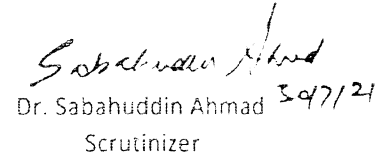 Sabahuddin Ahmad
Dr. Sabahuddin Ahmad 30/7/21
Scrutinizer